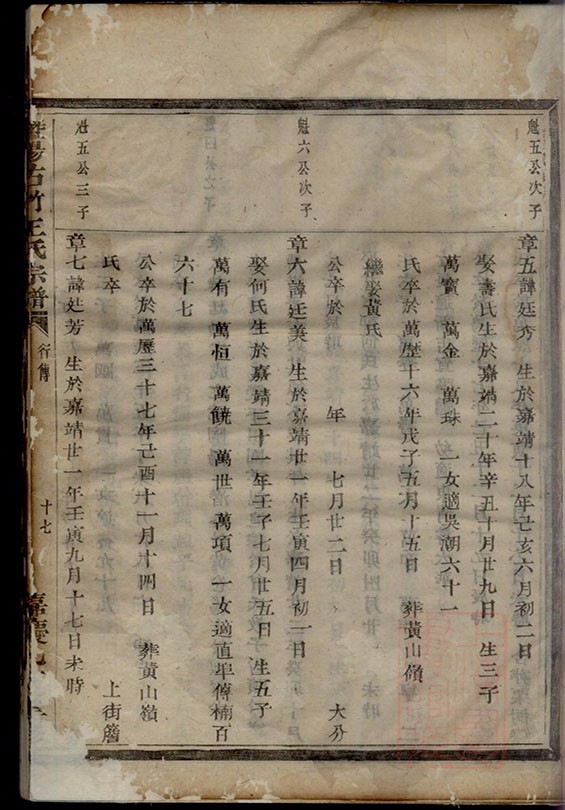 魁五公次子
章五諱廷秀　生於嘉靖十八年己亥六月初二日
娶壽氏生於嘉靖二十年辛丑十月廿九日　生三子
萬寶　萬金　萬珠　一女適吳潮六十一
氏卒於萬歷十六年戊子五月十五日　葬黃山嶺
繼娶黃氏
公卒於　年　七月廿二日　大分
魁六公次子
章六諱廷美　生於嘉靖廿一年壬寅四月初一日
娶何氏生於嘉靖三十一年壬子七月廿五日　生五子
萬有　萬恒　萬饒　萬世　萬項　一女適直埠傅楠百
六十七
公卒於萬歷三十七年己酉十一月十四日　葬黃山嶺
氏卒　上街簷
魁五公三子
章七諱廷芳　生於嘉靖廿一年壬寅九月十七日未時
暨陽古竹王氏宗譜　行傳　十七　嘉慶